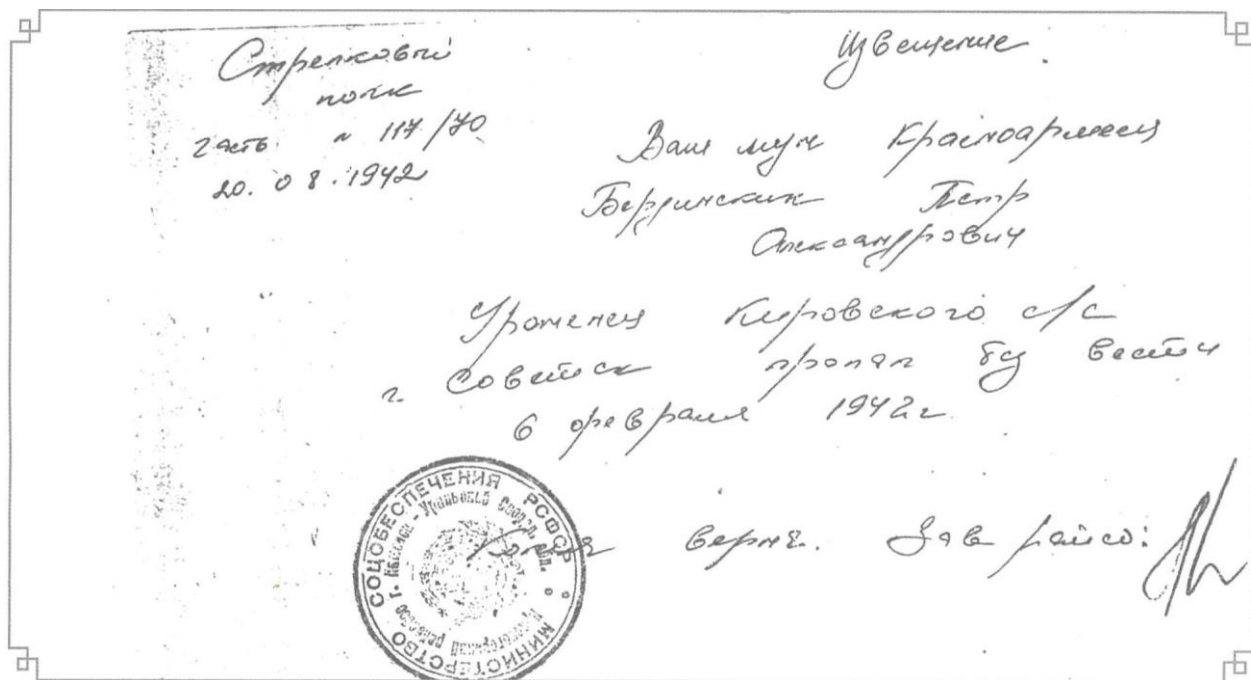 Стрелковый
полк
часть № 117/70
20.08.1942
Извещение.
Ваш муж Красноармеец
Бердинских Петр
Александрович
Уроженец Кировского с/с
г. Советск пропал без вести
6 февраля 1942г
Копия верна. Зав райсо:
МИНИСТЕРСТВО СОЦОБЕСПЕЧЕНИЯ РСФСР
г. Каменск-Уральский Свердл. обл.